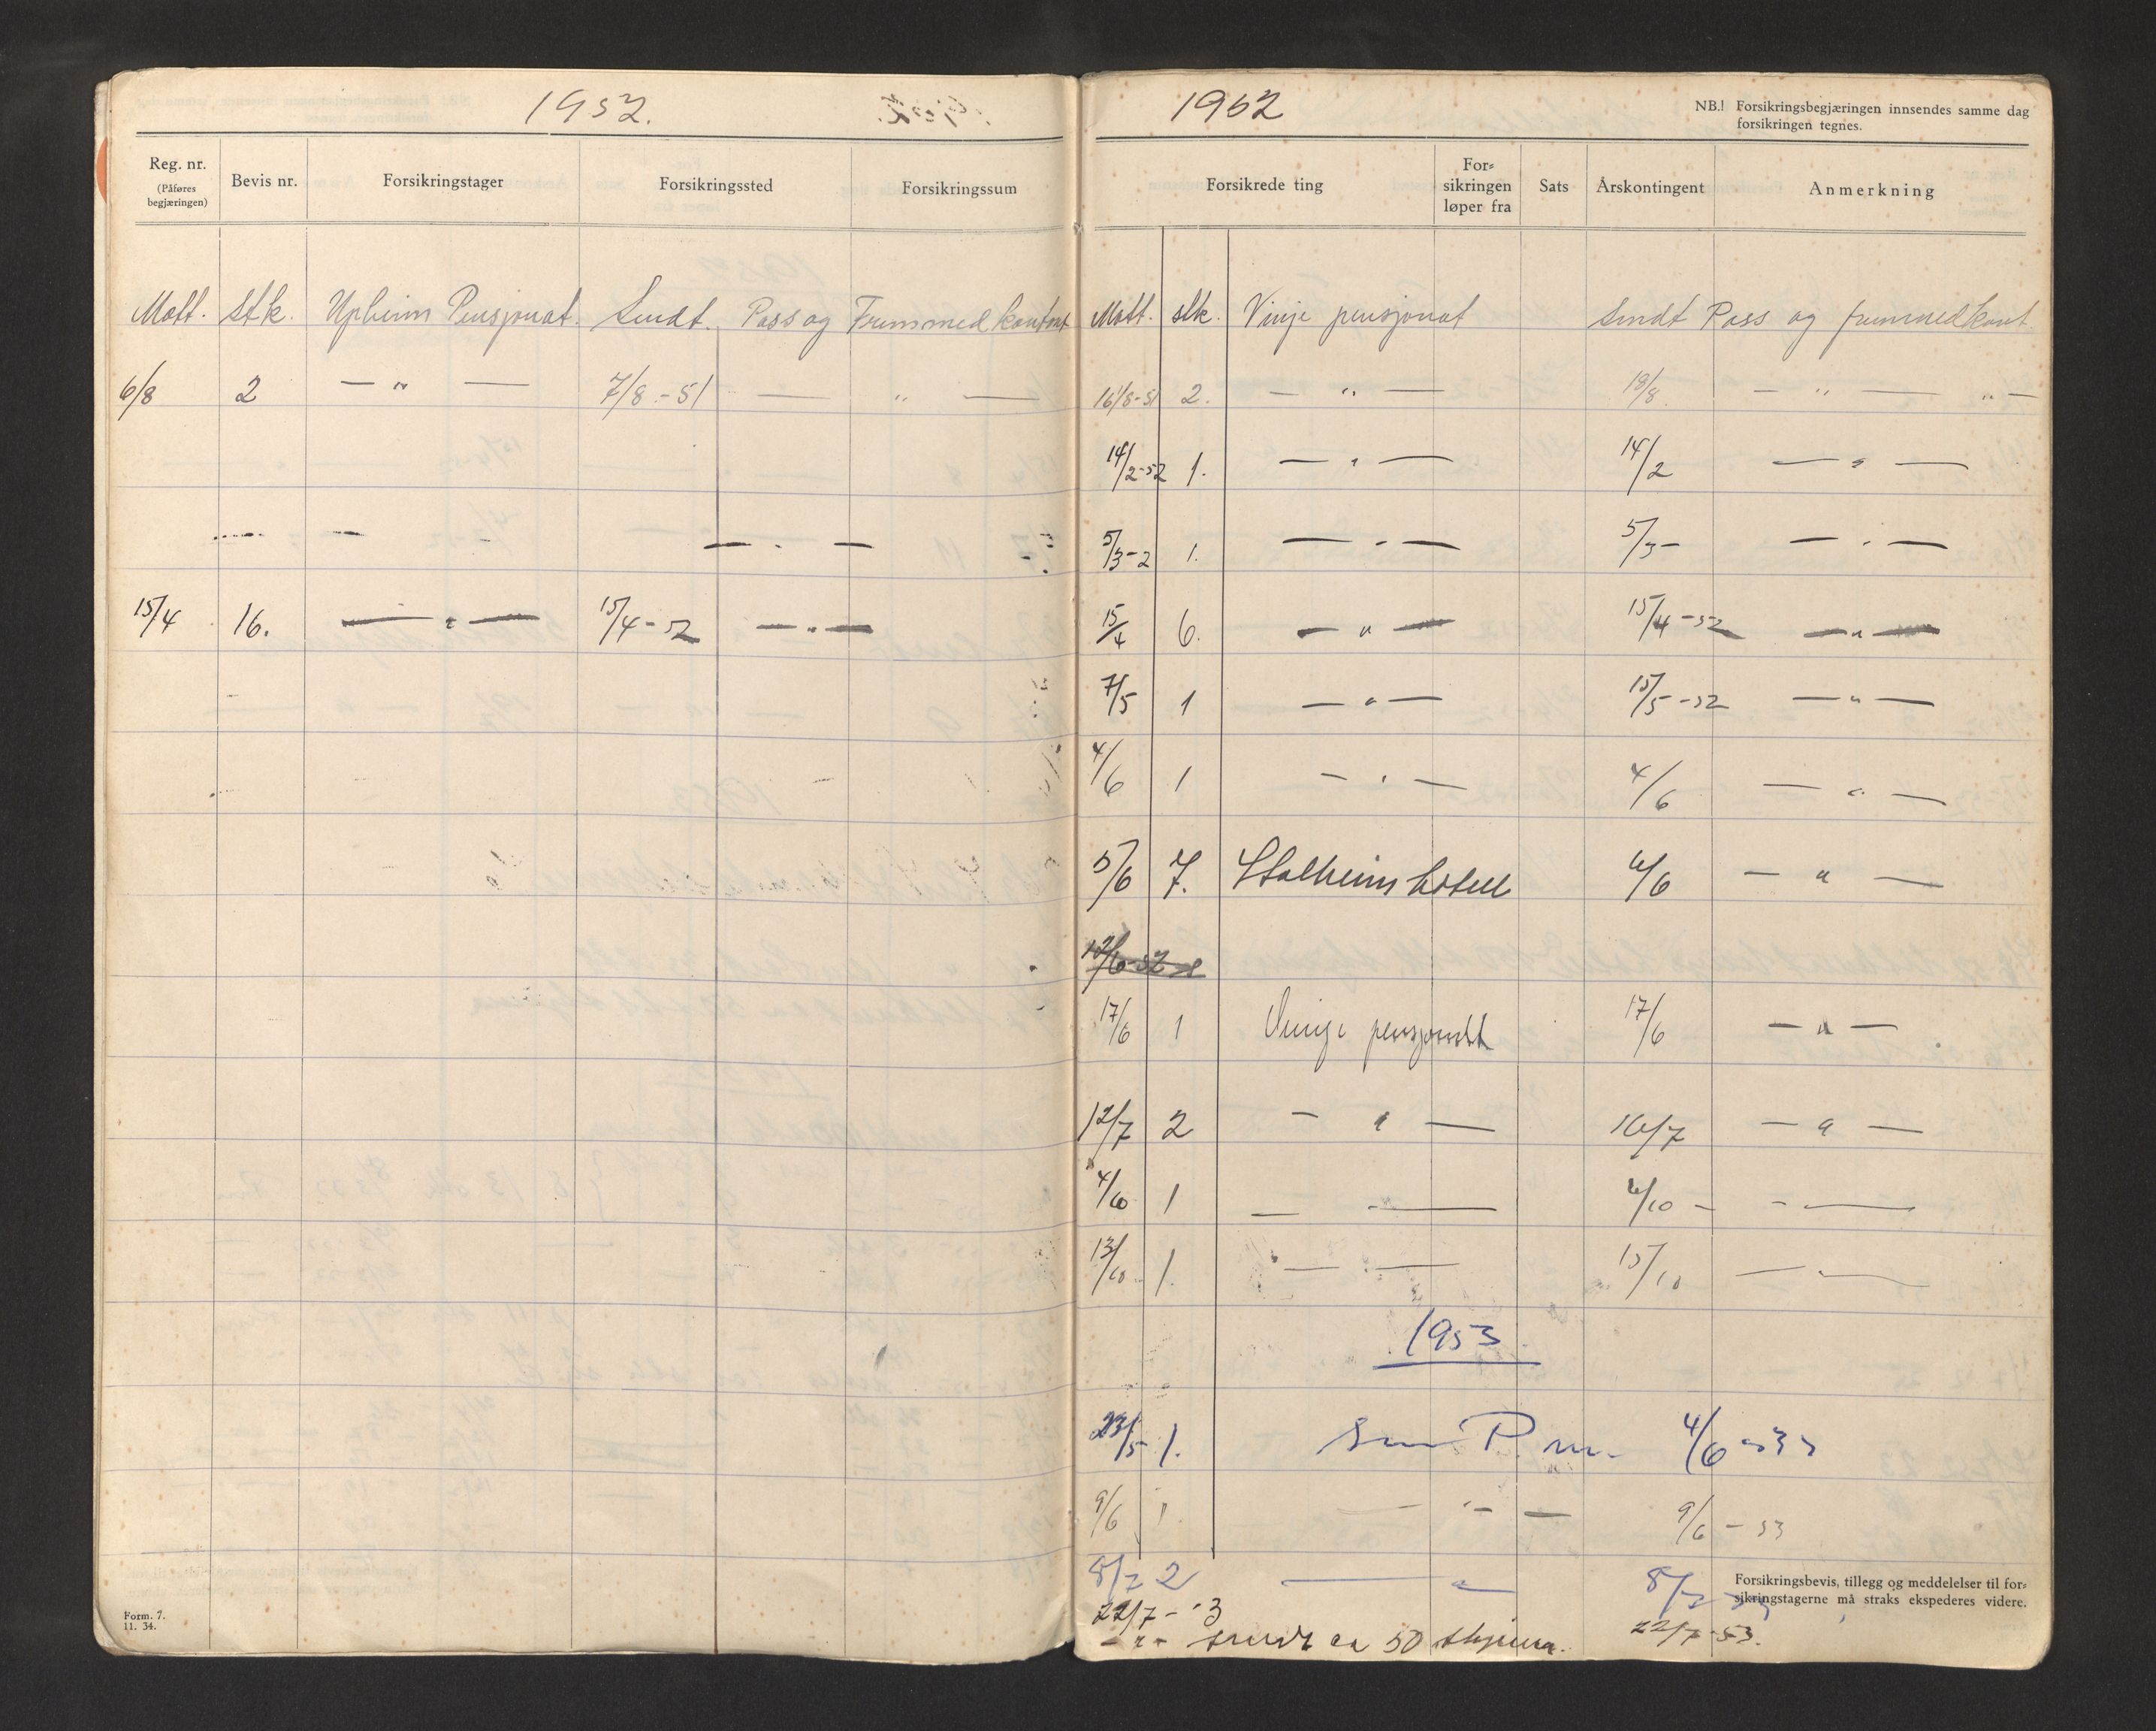 1952.
Reg. nr.
(Påføres
begjæringen)
Bevis nr.
Forsikringstager
Forsikringssted
Forsikringssum
Mott. Stk. Upheim Pensjonat. Sendt. Pass og Fremmedkontort
6/8 2 — " — 7/8 - 51 — " —
15/4 16. — " — 15/4 - 52 — " —
Form. 7.
11. 34.
1952
NB.! Forsikringsbegjæringen innsendes samme dag
forsikringen tegnes.
Forsikrede ting
For-
sikringen
løper fra
Sats
Årskontingent
Anmerkning
Mott. stk. Vinje pensjonat Sendt Pass og fremmedkont.
16/8-51 2. — " — 18/8 — " — " —
14/2-52 1. — " — 14/2 — " —
5/3-2 1. — " — 5/3- — " —
15/4 6. — " — 15/4-52 — " —
7/5 1 — " — 15/5-52 — " —
4/6 1 — " — 4/6 — " —
5/6 7. Stalheim hotell 6/6 — " —
17/6 1 Vinje pensjonat 17/6 — " —
12/7 2 — " — 16/7 — " —
4/10 1 — " — 6/10 - — " —
13/10 1. — " — 15/10 — " —
1953
23/5 1. 4/6 -53
9/6 1 — " — 9/6 - 53
8/7 2 — " — 8/7
Forsikringsbevis, tillegg og meddelelser til for-
sikringstagerne må straks ekspederes videre.
22/7 - 3
— " — sendt ca 50 skjema. 22/7-53.